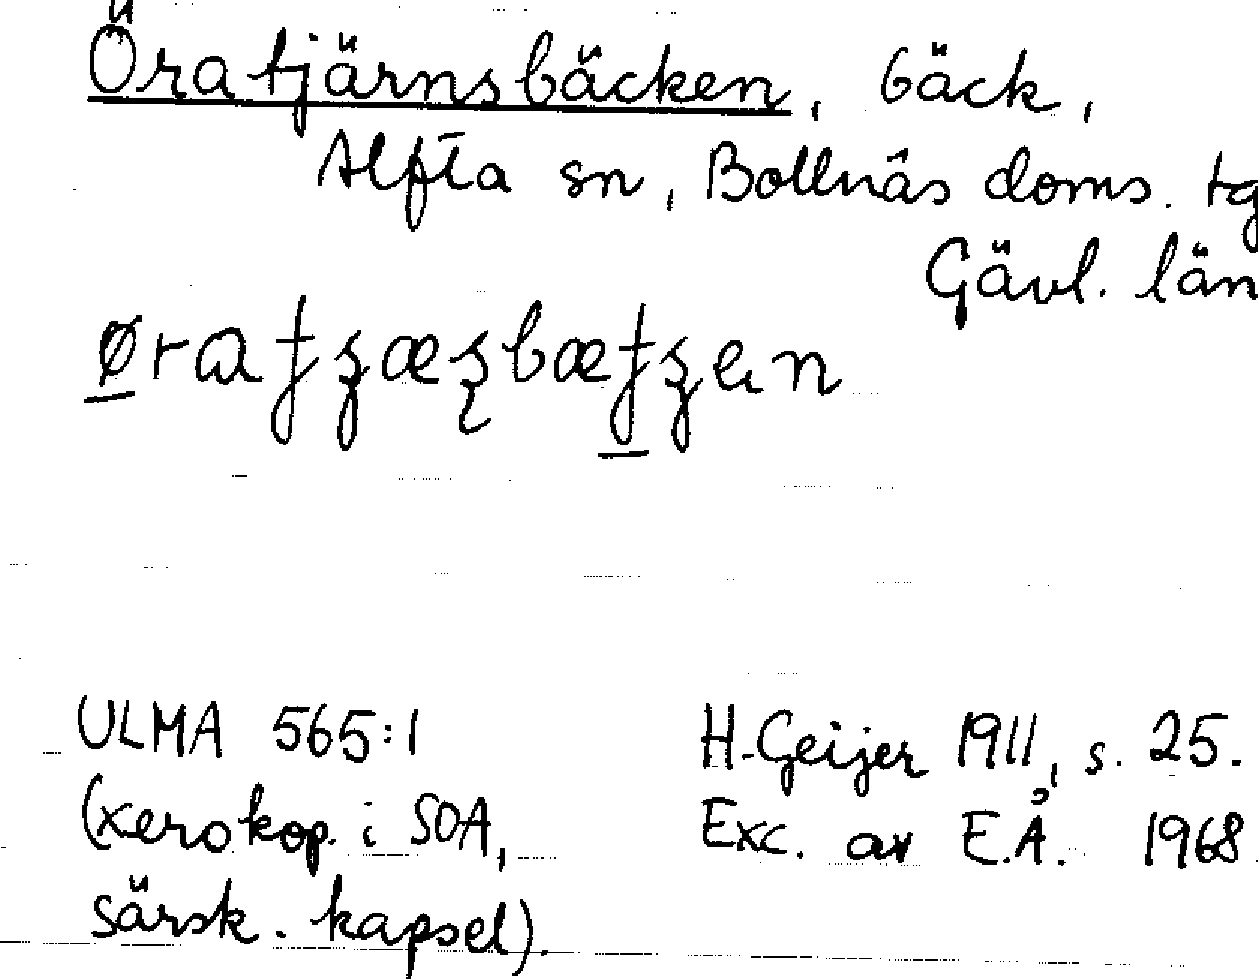 Öratjärnsbäcken, bäck,
Alfta sn, Bollnäs doms. tg
Gävl. län
ULMA 565:1
(xerokop. i SOA,
särsk. kapsel).
H. Geijer 1911, s. 25.
Exc. av E.Å. 1968